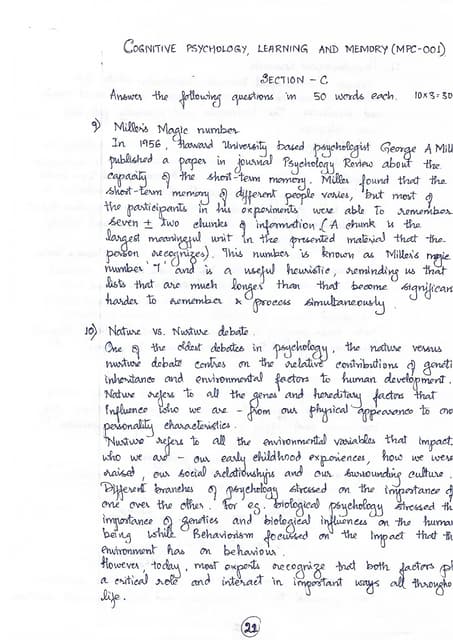 COGNITIVE PSYCHOLOGY, LEARNING AND MEMORY (MPC-001)
SECTION - C
Answer the following questions in 50 words each. 10x3=30
9) Miller's Magic number
In 1956, Harvard University based psychologist George A Mill
published a paper in journal Psychology Review about the
capacity of the short-term memory. Miller found that the
short-term memory of different people varies, but most of
the participants in his experiments were able to remember
seven ± two chunks of information (A chunk is the
largest meaningful unit in the presented material that the
person recognizes). This number is known as Miller's magic
number '7' and is a useful heuristic, reminding us that
lists that are much longer than that become significan
harder to remember & process simultaneously.
10) Nature vs. Nurture debate.
One of the oldest debates in psychology, the nature versus
nurture debate centres on the relative contributions of geneti
inheritance and environmental factors to human development.
Nature refers to all the genes and hereditary factors that
influence who we are - from our physical appearance to our
personality characteristics.
Nurture refers to all the environmental variables that impact
who we are - our early childhood experiences, how we were
raised, our social relationships and our surrounding culture.
Different branches of psychology stressed on the importance of
one over the other. For eg. biological psychology stressed th
importance of genetics and biological influences on the human
being while Behaviorism focussed on the impact that the
environment has on behaviour.
However, today, most experts recognize that both factors pl
a critical role and interact in important ways all througho
life.
22